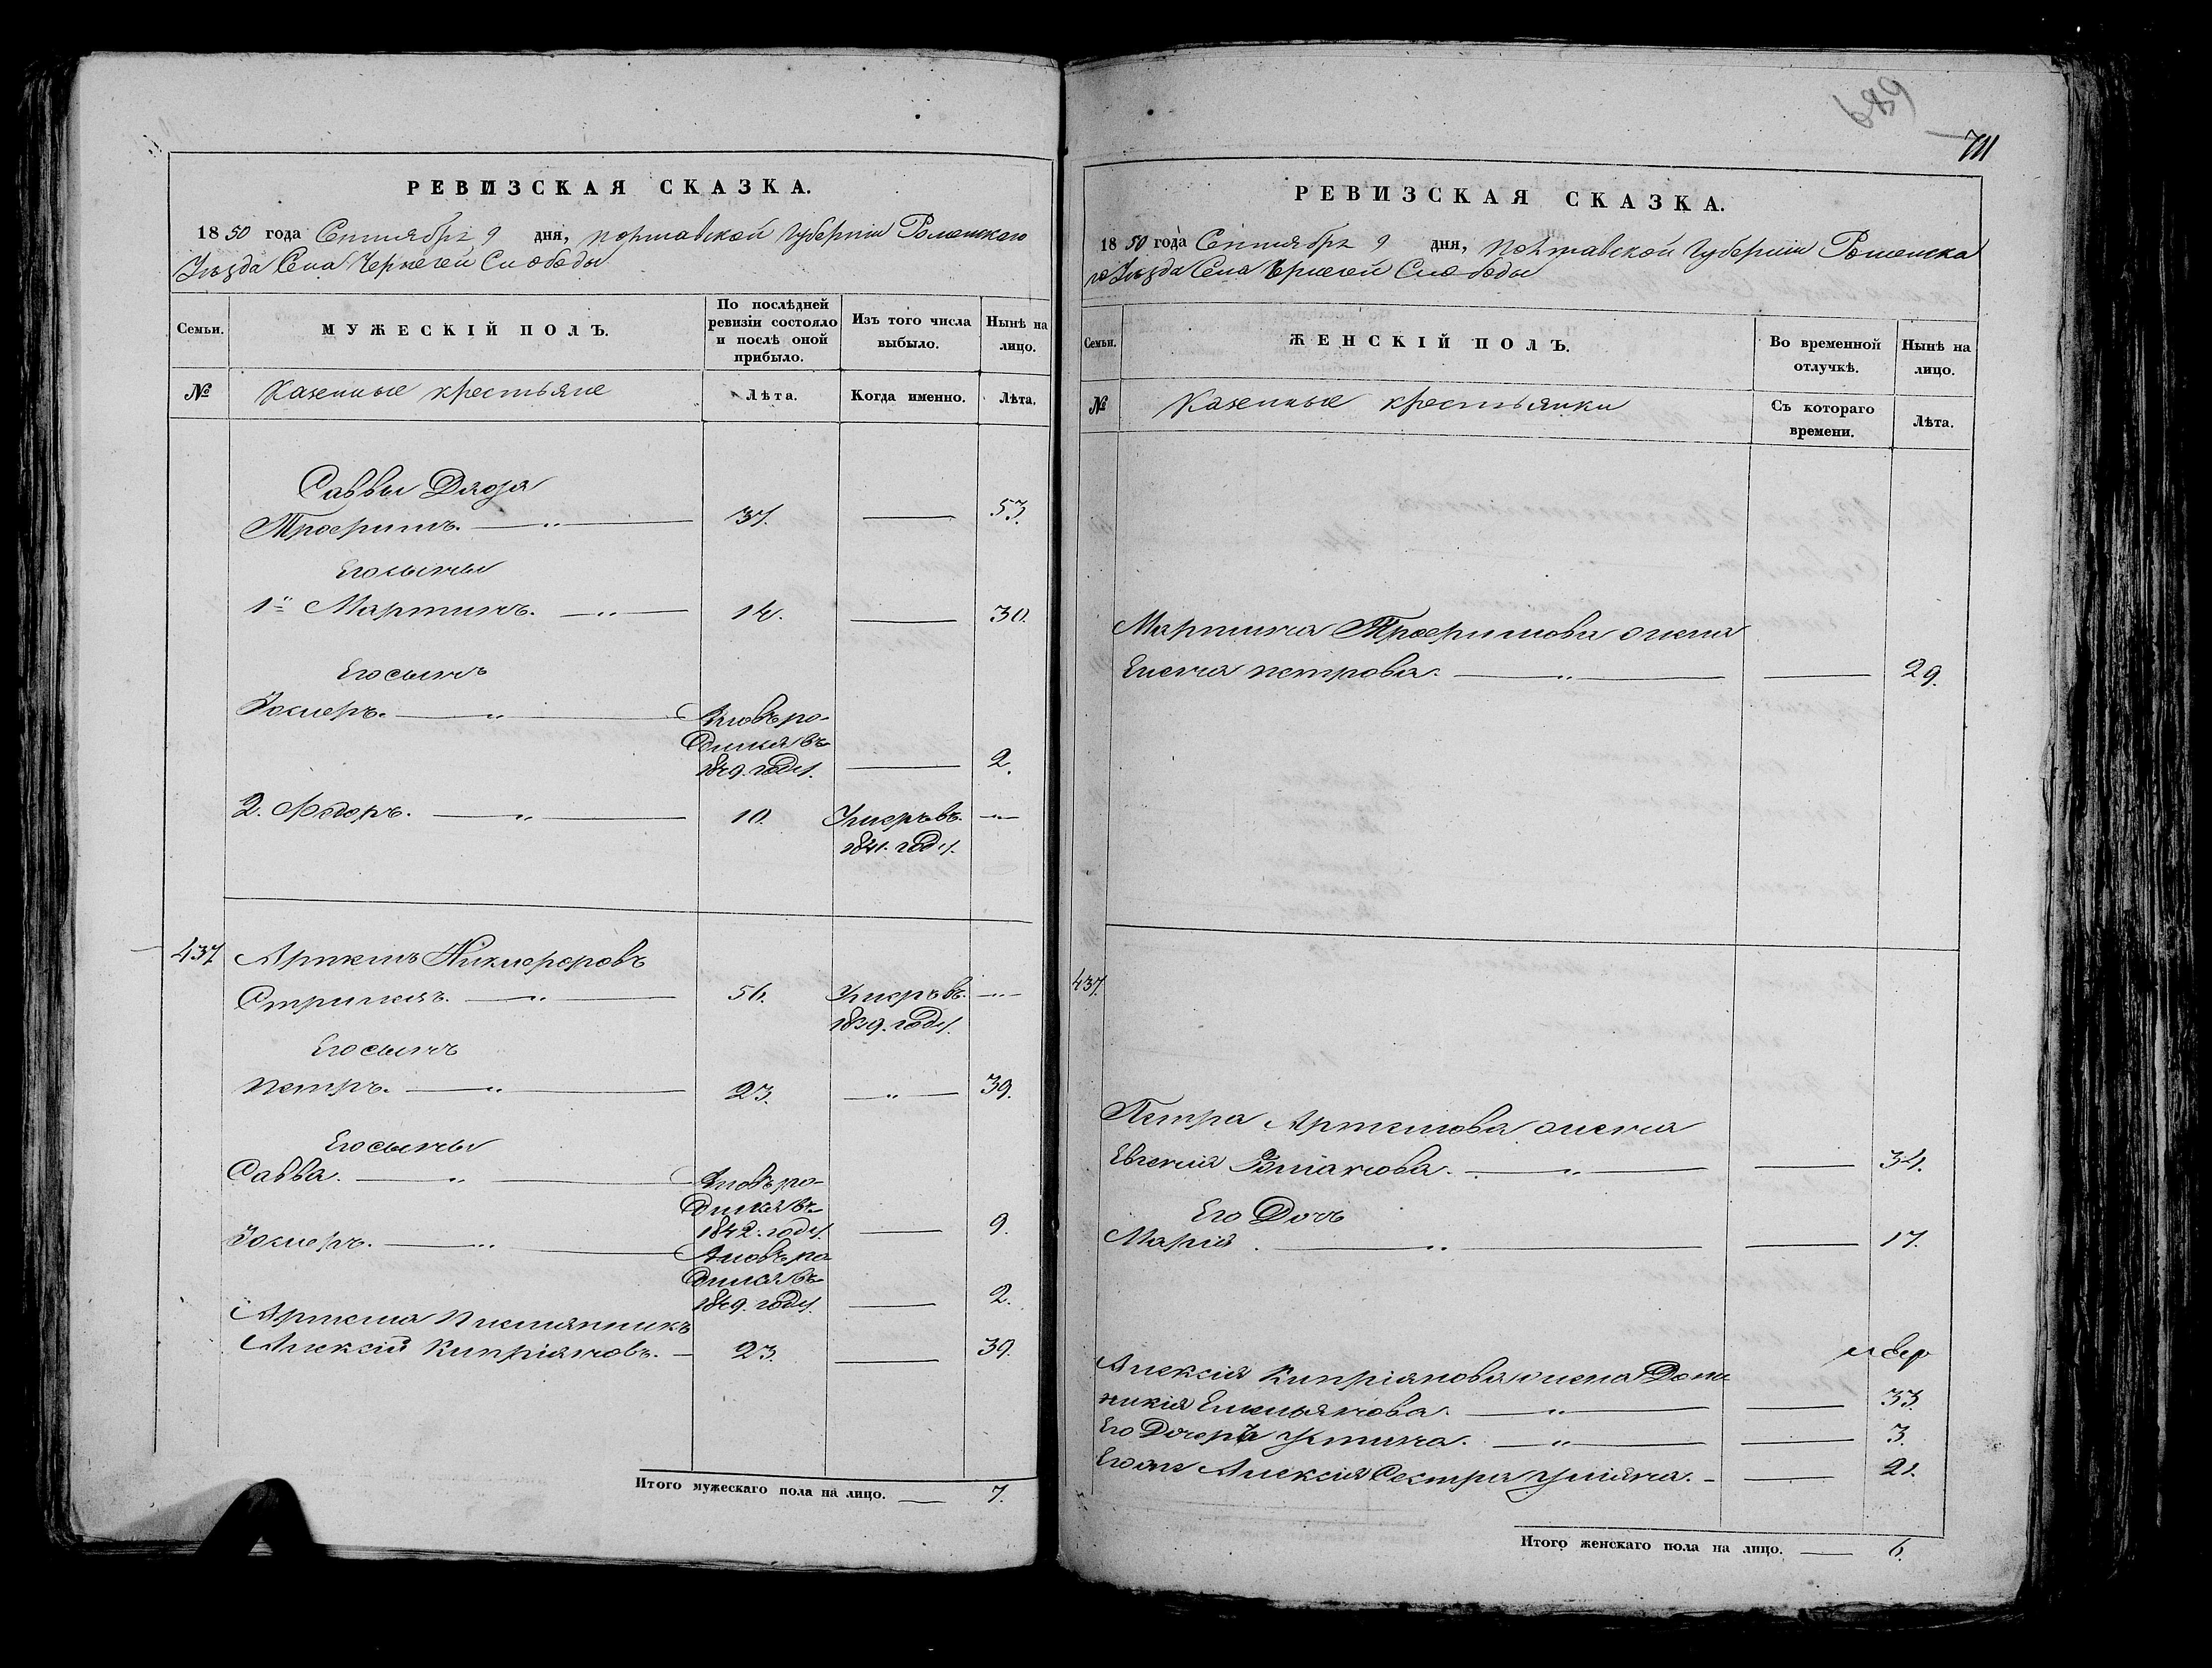 РЕВИЗСКАЯ СКАЗКА.
1850 года Сентября 9 дня, Полтавской Губернии Роменскаго
Уезда Села Черневой Слободы
Семьи.
МУЖЕСКІЙ ПОЛЪ.
По послѣдней ревизіи состояло и послѣ оной прибыло.
Изъ того числа выбыло.
Нынѣ на лицо.
№
Казенные крестьяне
Лѣта.
Когда именно.
Лѣта.
Саввы Дядя
Трофимъ. 37. — 53.
Его сыны
1й Мартинъ. 14. — 30.
Его сынъ
Вновь ро-
дился въ
1849. году. — 2.
2. Федоръ. 10. Умеръ въ
1841. году.
437 Артемъ Никифоровъ
56. Умеръ въ
1839. году.
Его сынъ
Петръ. 23. — 39.
Его сыны
Савва. Вновь ро-
дился въ
1842. году. — 9.
Вновь ро-
дился въ
1849. году. — 2.
Артема Племянникъ
Алексій Кипріяновъ. 23. — 39.
Итого мужескаго пола на лицо. — 7.
711
РЕВИЗСКАЯ СКАЗКА.
1850 года Сентября 9 дня, Полтавской Губерніи Роменска
го Уезда Села Черневой Слободы
Семьи.
ЖЕНСКІЙ ПОЛЪ.
Во временной отлучкѣ.
Нынѣ на лицо.
№
Казенные крестьянки
Съ котораго времени.
Лѣта.
Мартина Трофимова жена
Елена Петрова. — 29.
437.
Петра Артемова жена
Евгенія Романова. — 34.
Его Дочь
Марія. — 17.
Алексія Кипріянова жена Дом
никія Емельянова. — 33.
Его Дочерь Устина. — 3.
Его же Алексія Сестра Уліяна. — 21.
Итого женскаго пола на лицо. — 6.